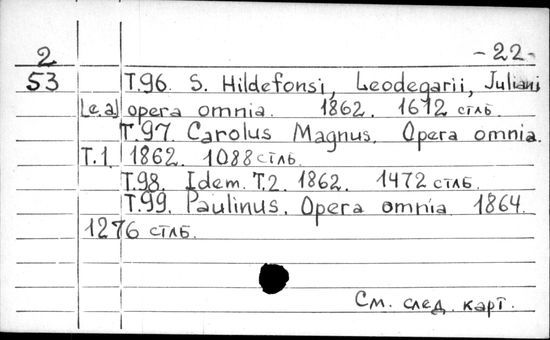 2 -22-
53 T.96. S. Hildefonsi, Leodegarii, Juliani
[e.a] opera omnia. 1862. 1612 стлб.
T.97. Carolus Magnus. Opera omnia.
T.1. 1862. 1088 стлб.
T.98. Idem. T.2. 1862. 1472 стлб.
T.99. Paulinus. Opera omnia 1864.
1276 стлб.
См. след. карт.